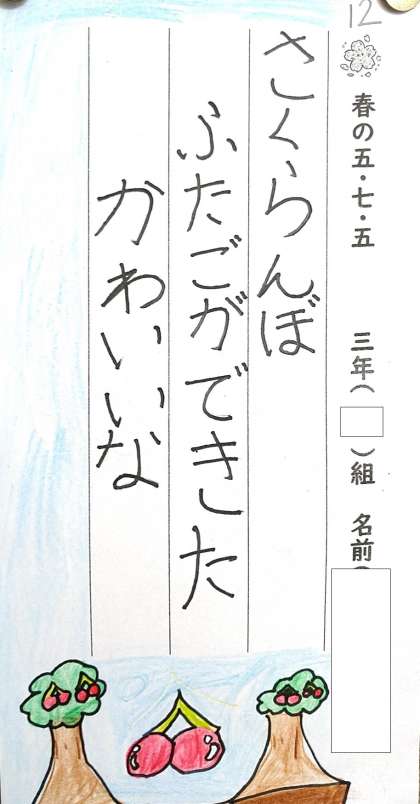 12
春の五・七・五 三年( )組 名前(
さくらんぼ
ふたごができた
かわいいな